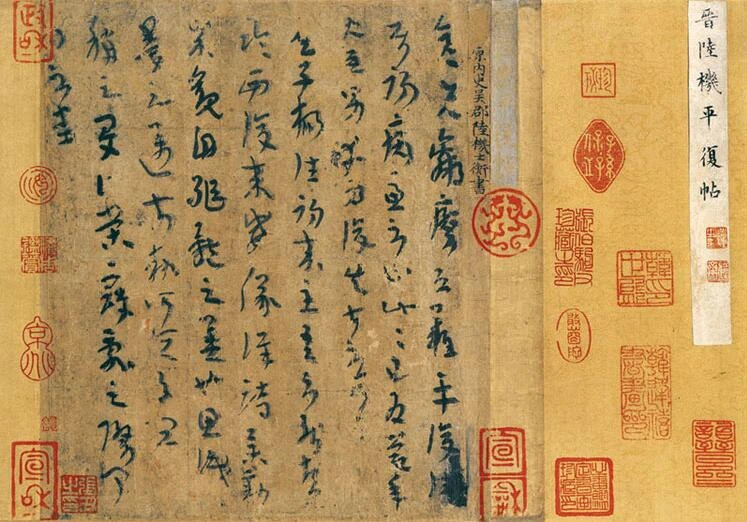 晉陸機平復帖
原内史吳郡陸機士衡書
彦先羸瘵恐難平復往屬
初病慮不止此此已為慶承
使唯男幸為復失前憂耳
吳子楊往初來主吾不能盡
臨西復來威儀詳跱舉動
成觀自軀體之美也思識
量之邁前執所恒有宜
稱之夏伯榮寇亂之際聞
問不悉
政和
宣和
宣和
張伯駒父珍藏之印